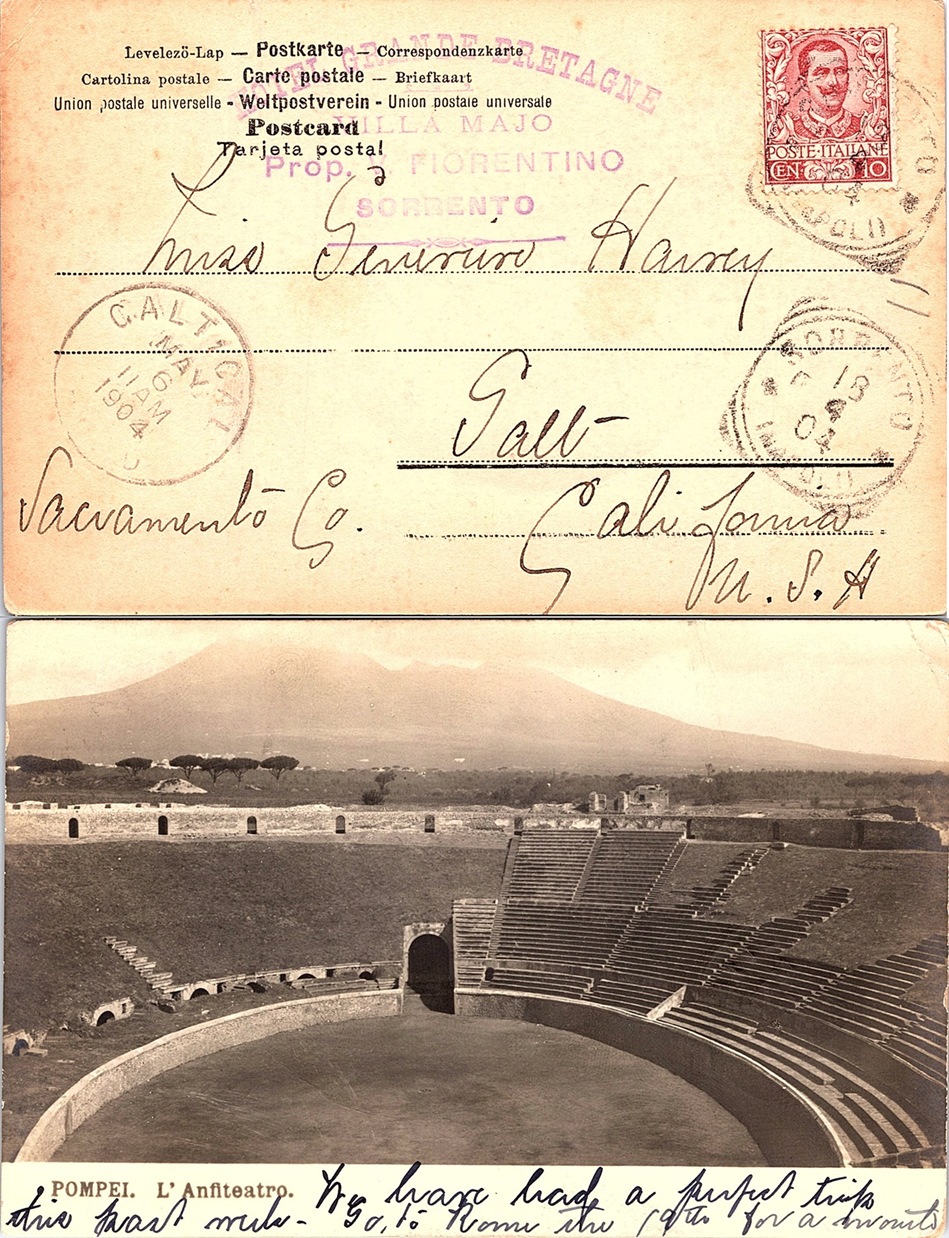 Levelezö-Lap — Postkarte — Correspondenzkarte
Cartolina postale — Carte postale — Briefkaart
Union postale universelle - Weltpostverein - Union postale universale
Postcard
Tarjeta postal
HOTEL GRANDE BRETAGNE
VILLA MAJO
Prop. V. FIORENTINO
SORRENTO
POSTE·ITALIANE
CEN 10
Miss Genevieve Harvey
GALT CAL
MAY
6
11 AM
1904
SORRENTO
18
4
04
(NAPOLI)
Galt
Sacramento Co.
California
U.S.A
POMPEI. L'Anfiteatro.
We have had a perfect trip
this past week - Go to Rome the 19th for a month